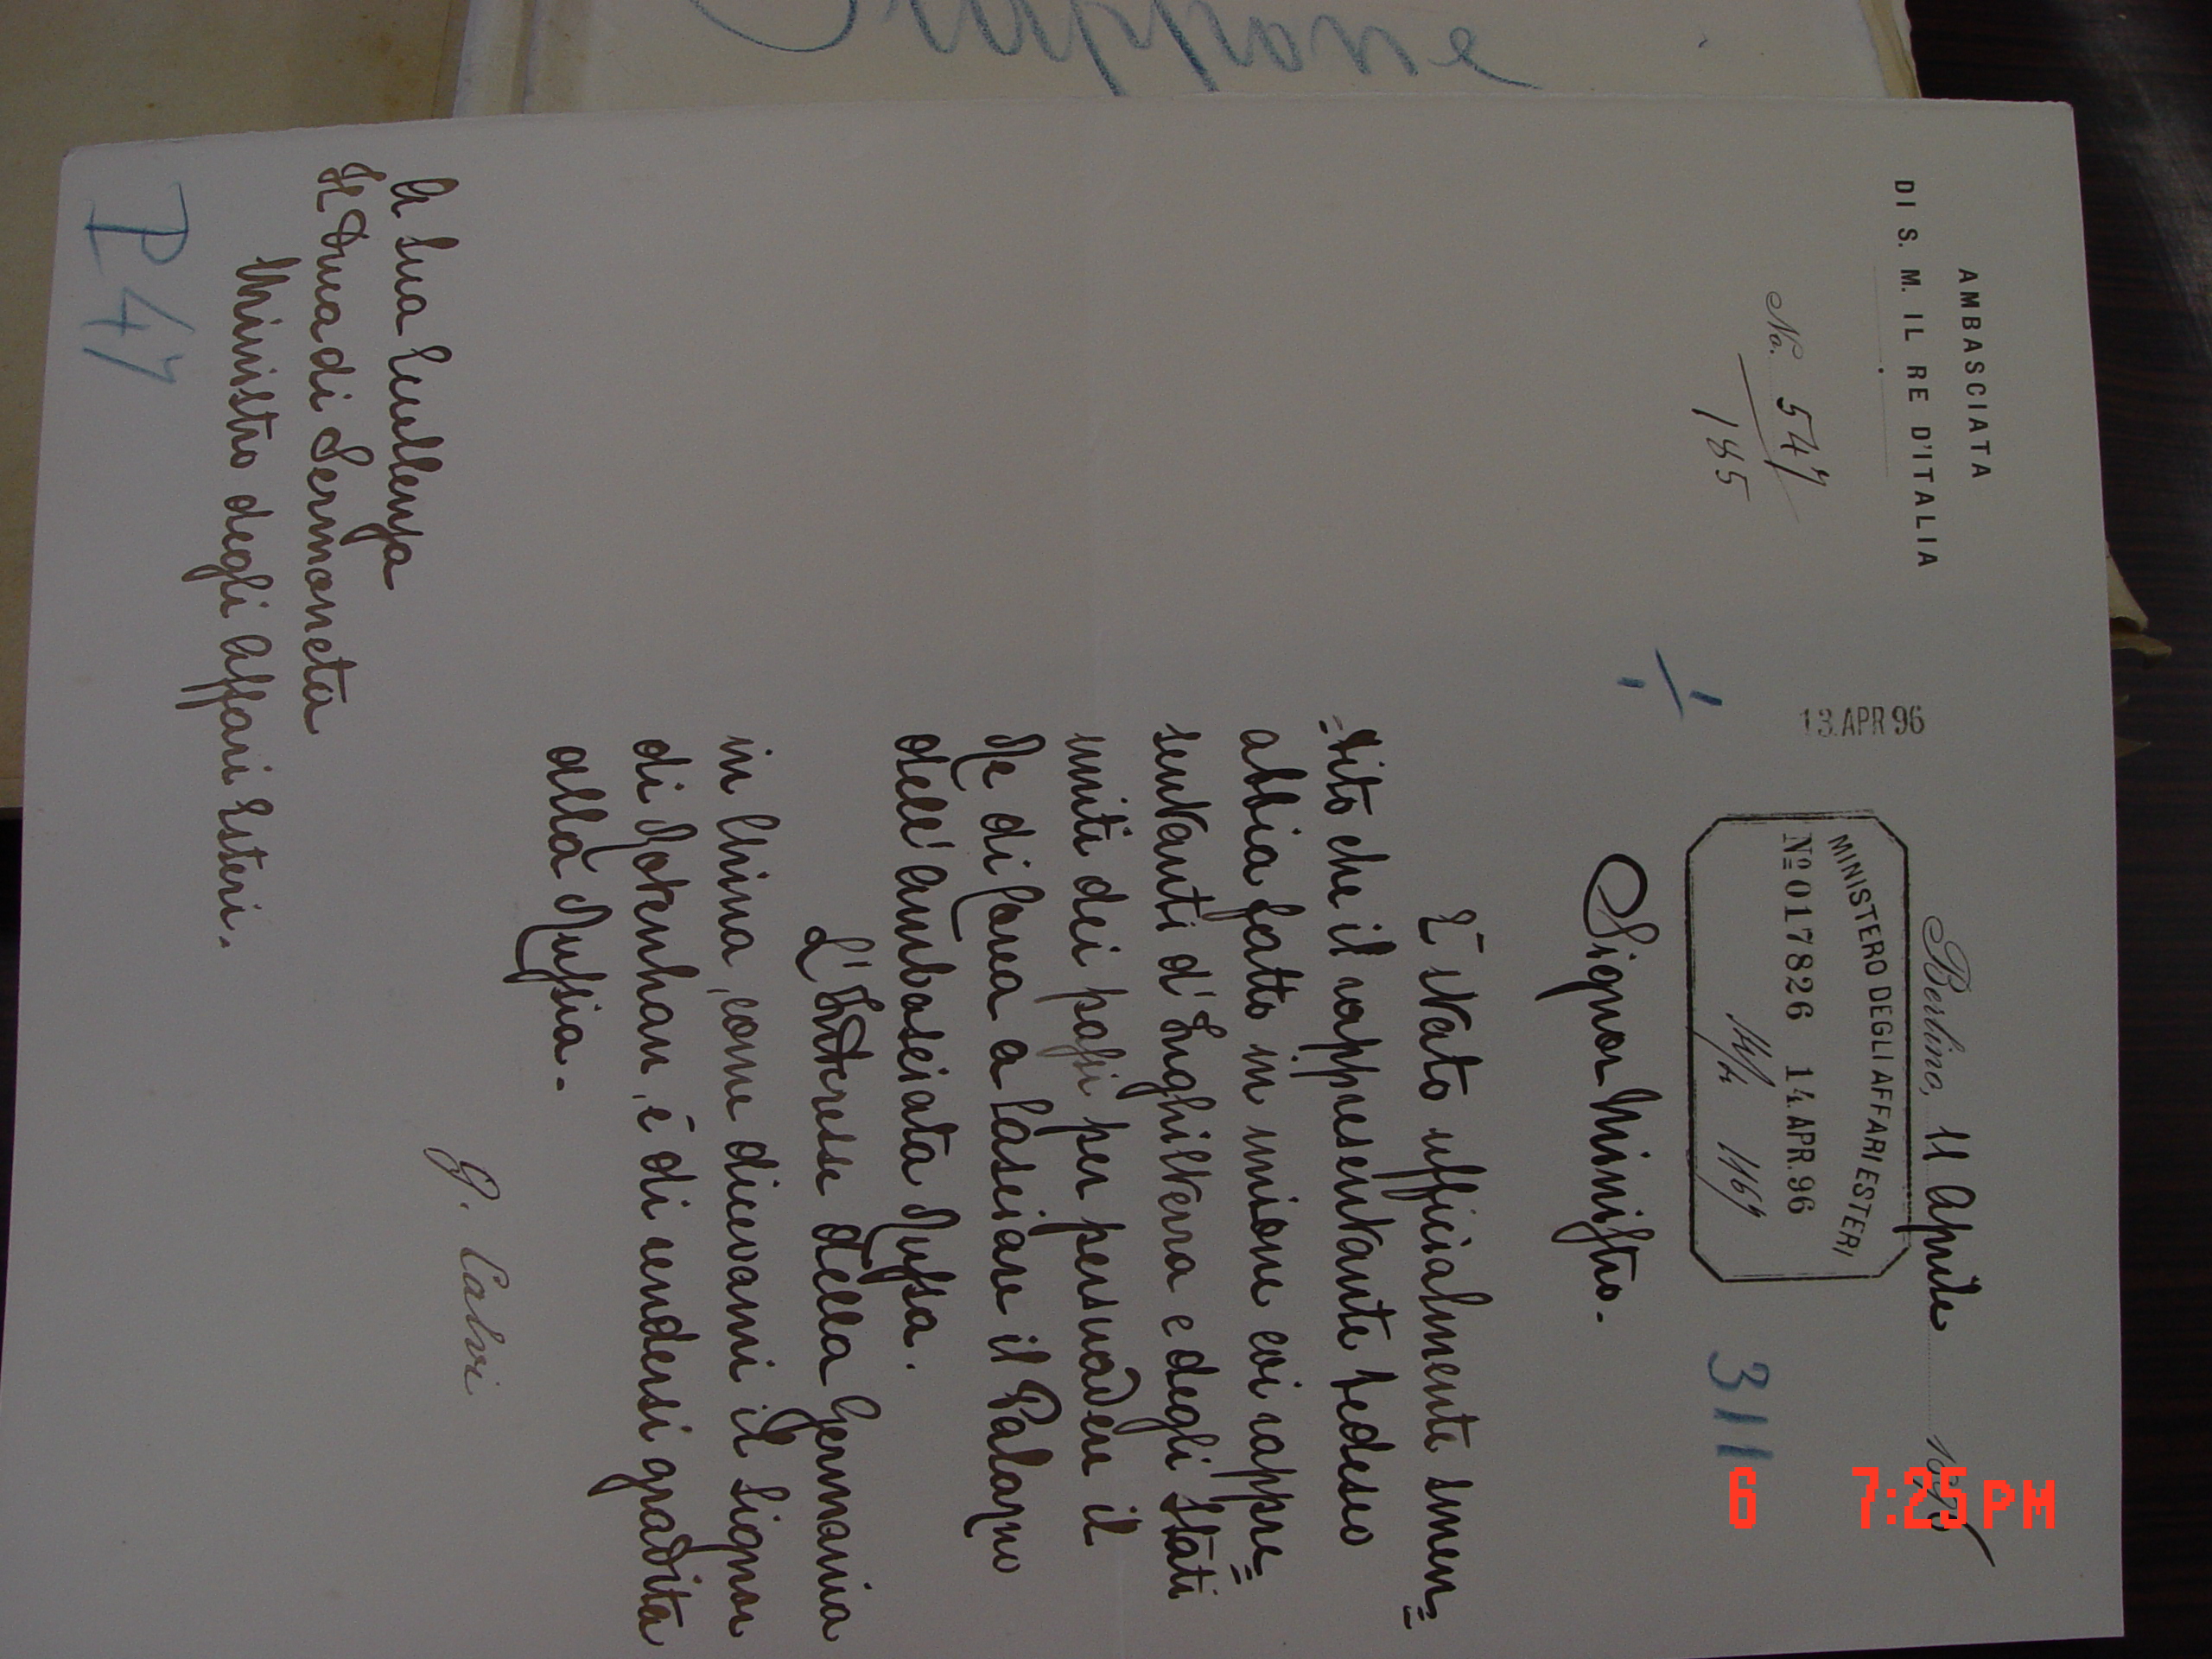 Giappone
AMBASCIATA
DI S. M. IL RE D'ITALIA
No. 547
185
13. APR 96
Berlino, 11 Aprile 1896
MINISTERO DEGLI AFFARI ESTERI
Nº 017826 14. APR. 96
311
Signor Ministro.
E' stato ufficialmente smen=
-tito che il rappresentante tedesco
abbia fatto in unione coi rappre=
sentanti d'Inghilterra e degli Stati
uniti dei passi per persuadere il
Re di Corea a lasciare il Palazzo
dell'Ambasciata Russa.
L'Interesse della Germania
in China, come dicevami il Signor
di Rotenhan, è di rendersi gradita
alla Russia.
G. Calvi
A Sua Eccellenza
Il Duca di Sermoneta
Ministro degli Affari Esteri.
P 47
6 7:25PM